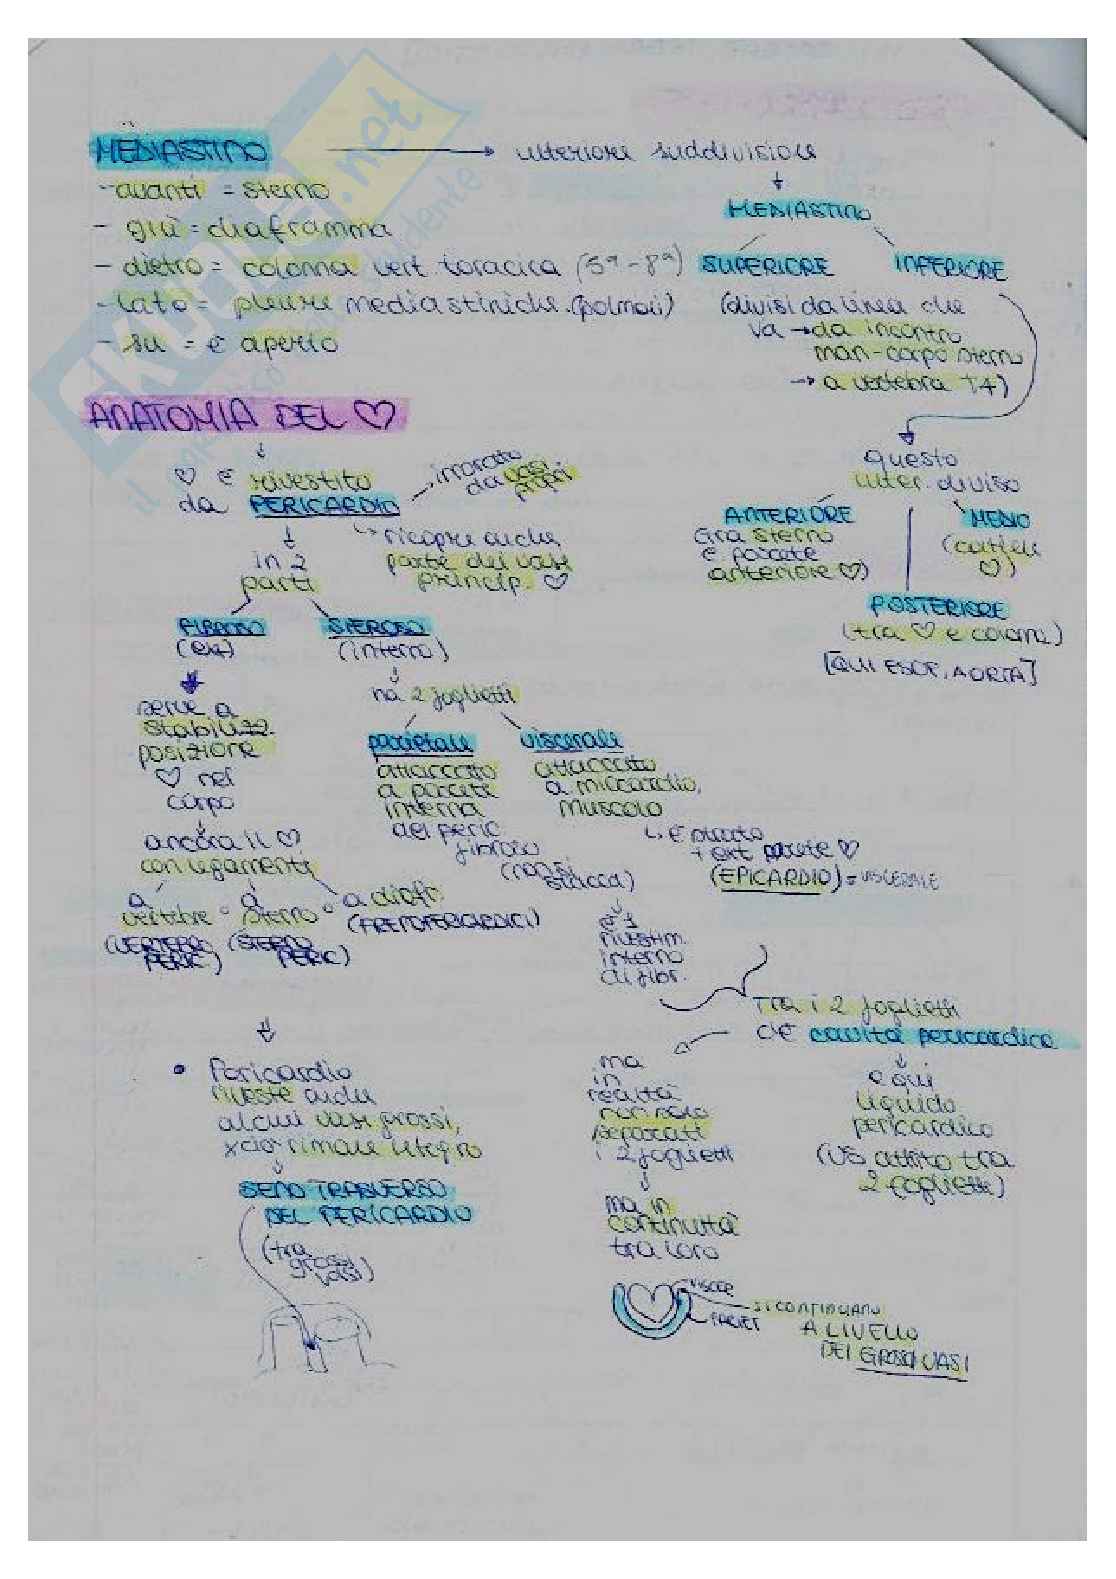 MEDIASTINO → ulteriore suddivisione
- avanti = sterno
- giù = diaframma
- dietro = colonna vert. toracica (5ª-8ª)
- lato = pleure mediastiniche (polmoni)
- su = è aperto
MEDIASTINO
SUPERIORE INFERIORE
(divisi da linea che
va → da incontro
man-corpo sterno
→ a vertebra T4)
questo
ulter. diviso
ANTERIORE
tra sterno
e parete
anteriore ♡)
MEDIO
(contiene
♡)
POSTERIORE
(tra ♡ e colonna)
[QUI ESOF, AORTA]
ANATOMIA DEL ♡
♡ è rivestito
da PERICARDIO
irrorato
da vasi
propri
ricopre anche
parte dei vasi
princip. ♡
in 2
parti
FIBROSO
(est)
SIEROSO
(interno)
serve a
stabilizz.
posizione
♡ nel
corpo
ancora il ♡
con legamenti
a
vertebre
(VERTEBRO
PERIC.)
a
sterno
(STERNO
PERIC)
a diafr.
(FRENOPERICARDICI)
ha 2 foglietti
parietale
attaccato
a parete
interna
del peric
fibroso
(non si
stacca)
è 1
rivestim.
interno
di fibr.
viscerale
attaccato
a miocardio,
muscolo
è strato
+ est parete ♡
(EPICARDIO) = VISCERALE
Tra i 2 foglietti
c'è cavità pericardica
ma
in
realtà
non sono
separati
i 2 foglietti
ma in
continuità
tra loro
e qui
liquido
pericardico
(VS attrito tra
2 foglietti)
VISCER
PARIET
SI CONTINUANO
A LIVELLO
DEI GROSSI VASI
• Pericardio
riveste anche
alcuni vasi grossi,
x ciò rimane integro
SENO TRASVERSO
DEL PERICARDIO
(tra
grossi
vasi)
SKUOLA.net